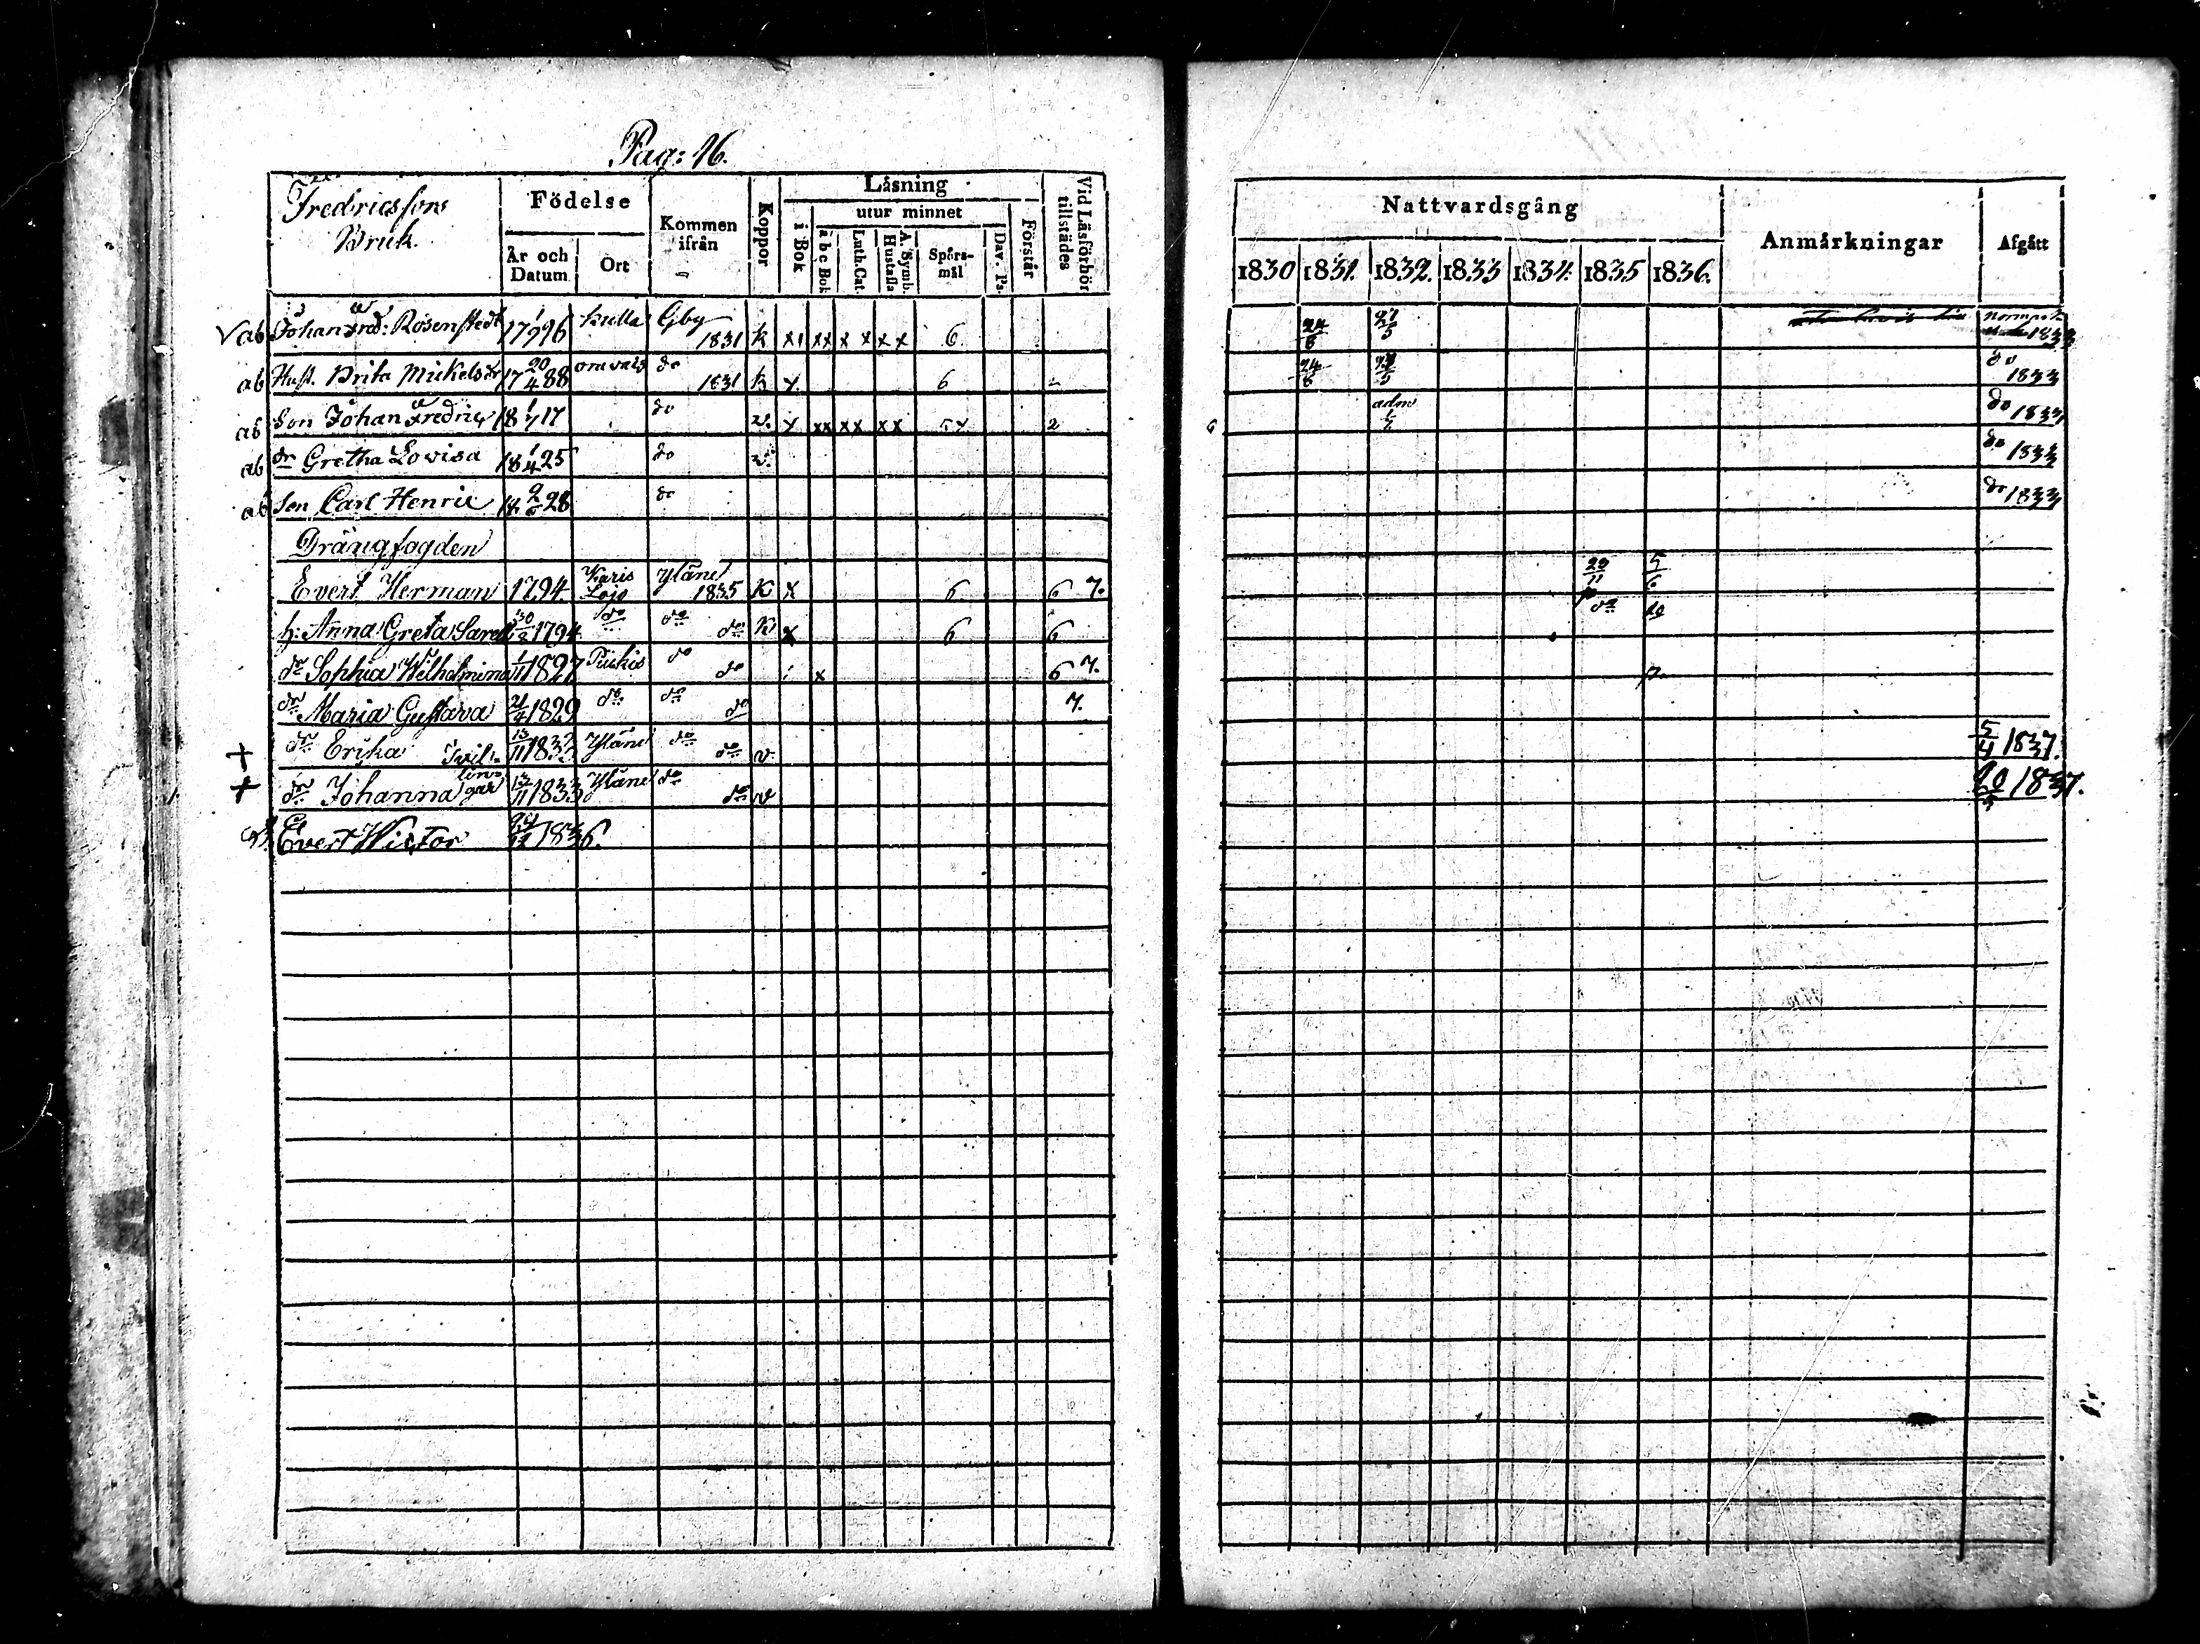 Pag: 16.
Fredricsfors
Bruk.
Födelse
År och Datum
Ort
Kommen ifrån
Koppor
Läsning
i Bok
utur minnet
a b c Bok
Luth. Cat.
A. Symb. Hustafla
Spörsmål
Dav. Ps.
Förstår
Vid Läsförhör tillstädes
Nattvardsgång
1830 1831. 1832. 1833 1834. 1835 1836.
Anmärkningar
Afgått
ab Johan Fred: Rosenstedt 17 96 Kulla Gby 1831 k x 6 24/6 27/5 1833
ab Hust. Brita Mickelsdr 17 20/4 88 do 1831 k x 6 24/6 do 1833
ab Son Johan Fredric 18 17 do v. x xx xx xx 2 adm do 1833
ab dr Gretha Lovisa 18 1/4 25 do v. do 1833
ab Son Carl Henric 18 28 do do 1833
Drängfogden
Evert Herman 1794. Karis Lojo Yläne 1835 K x 6 6 7. 5/6
h: Anna Greta 1794. do do do K x 6 6 do
dr Sophia Wilhelmina 1/11 1827 Puckis do do x 6 7.
dr Maria Gustava 21/4 1829 do do do 7.
+ dr Erika Tvil- 13/11 1833 Yläne do do v. 5/4 1837.
+ dr Johanna lingar 13/11 1833 Yläne do do v 20/5 1837.
Evert Victor 1836.